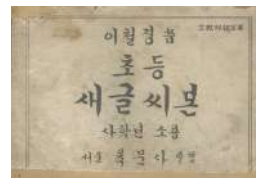 이철경 씀
초등
새글씨본
사학년 소용
서울